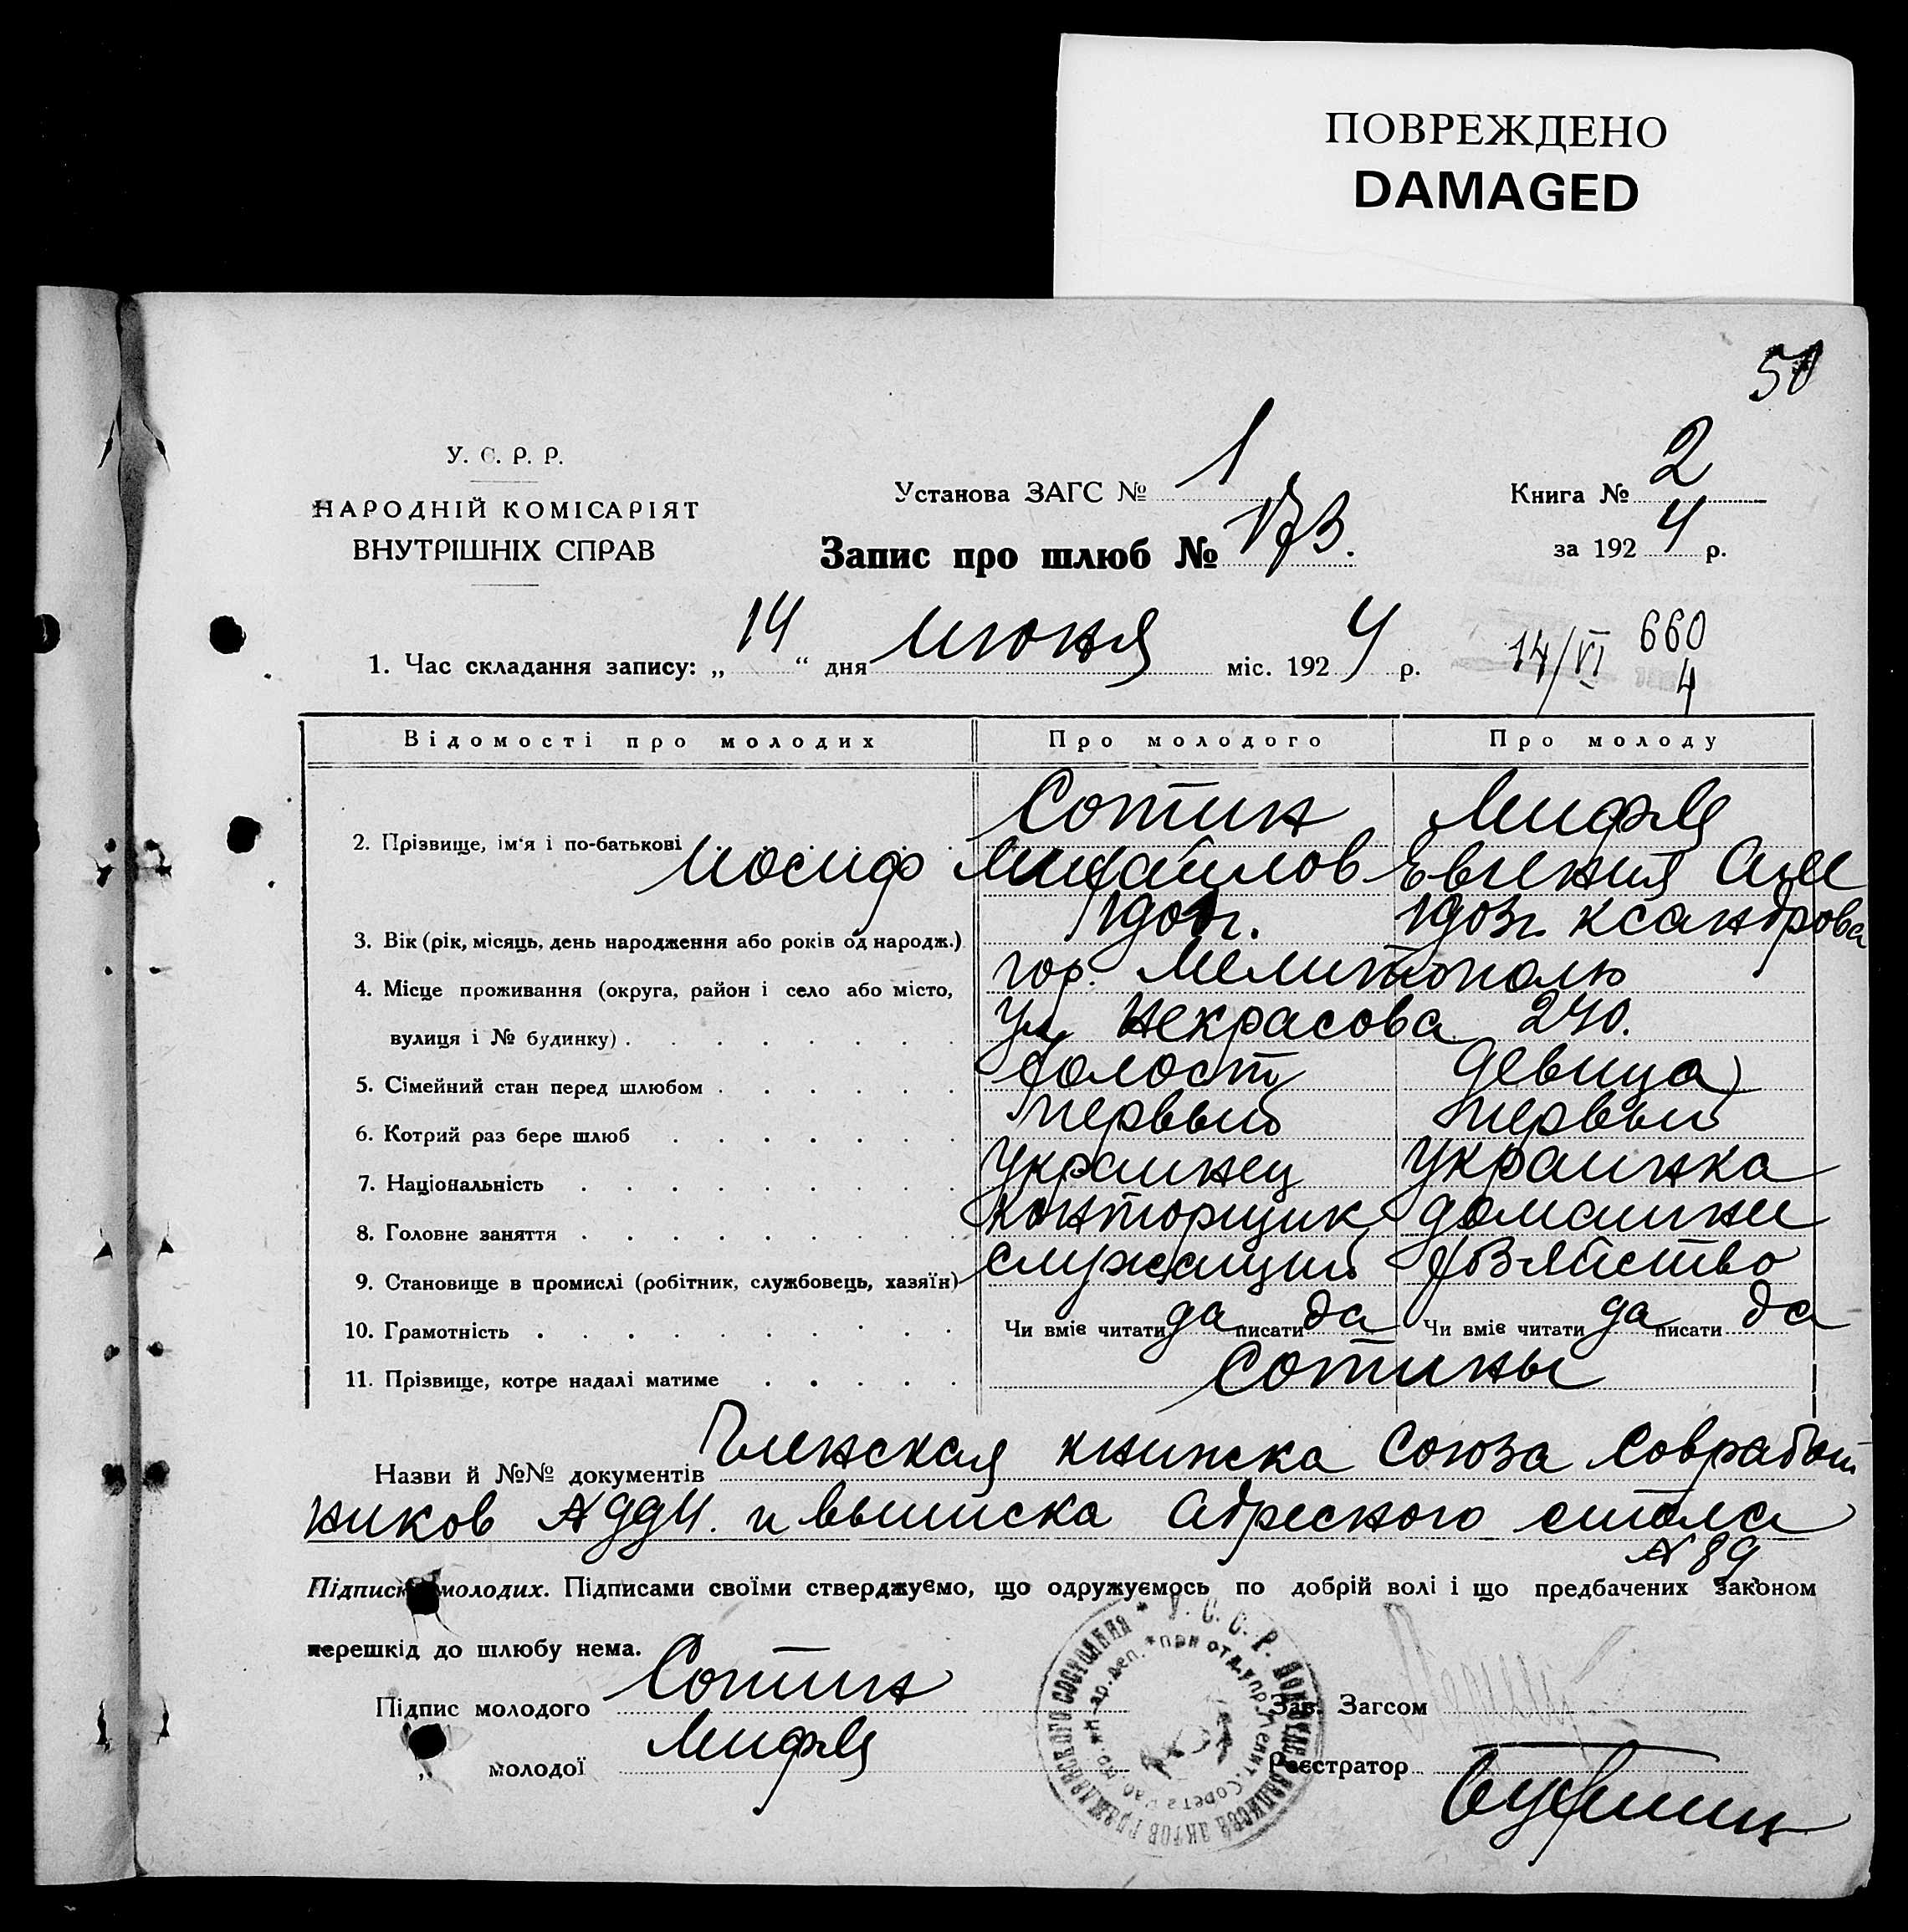 ПОВРЕЖДЕНО
DAMAGED
50
У. С. Р. Р.
НАРОДНІЙ КОМІСАРІЯТ
ВНУТРІШНІХ СПРАВ
Установа ЗАГС № 1
Книга № 2
Запис про шлюб № 173.
за 1924 р.
1. Час складання запису: „14“ дня июня міс. 1924 р.
14/VI 660
4
Відомості про молодих Про молодого Про молоду
Сотин
2. Прізвище, ім'я і по-батькові Иосиф Михайлов Евгения Але
ксандрова
3. Вік (рік, місяць, день народження або років од народж.) 1903г.
4. Місце проживання (округа, район і село або місто, гор. Мелитополь
вулиця і № будинку) ул Некрасова 240.
5. Сімейний стан перед шлюбом холост девица
6. Котрий раз бере шлюб первый первый
7. Національність Украинец Украинка
8. Головне заняття конторщик домашнее
9. Становище в промислі (робітник, службовець, хазяїн) служащий хозяйство
10. Грамотність Чи вміє читати да писати да Чи вміє читати да писати да
11. Прізвище, котре надалі матиме Сотины
Назви й №№ документів Членская книжка Союза Совработ
ников № 994. и выписка адресного стола
№ 89
Підписи молодих. Підписами своїми стверджуємо, що одружуємось по добрій волі і що предбачених законом
перешкід до шлюбу нема.
Підпис молодого Сотин
Зав. Загсом
„ молодої
Реєстратор